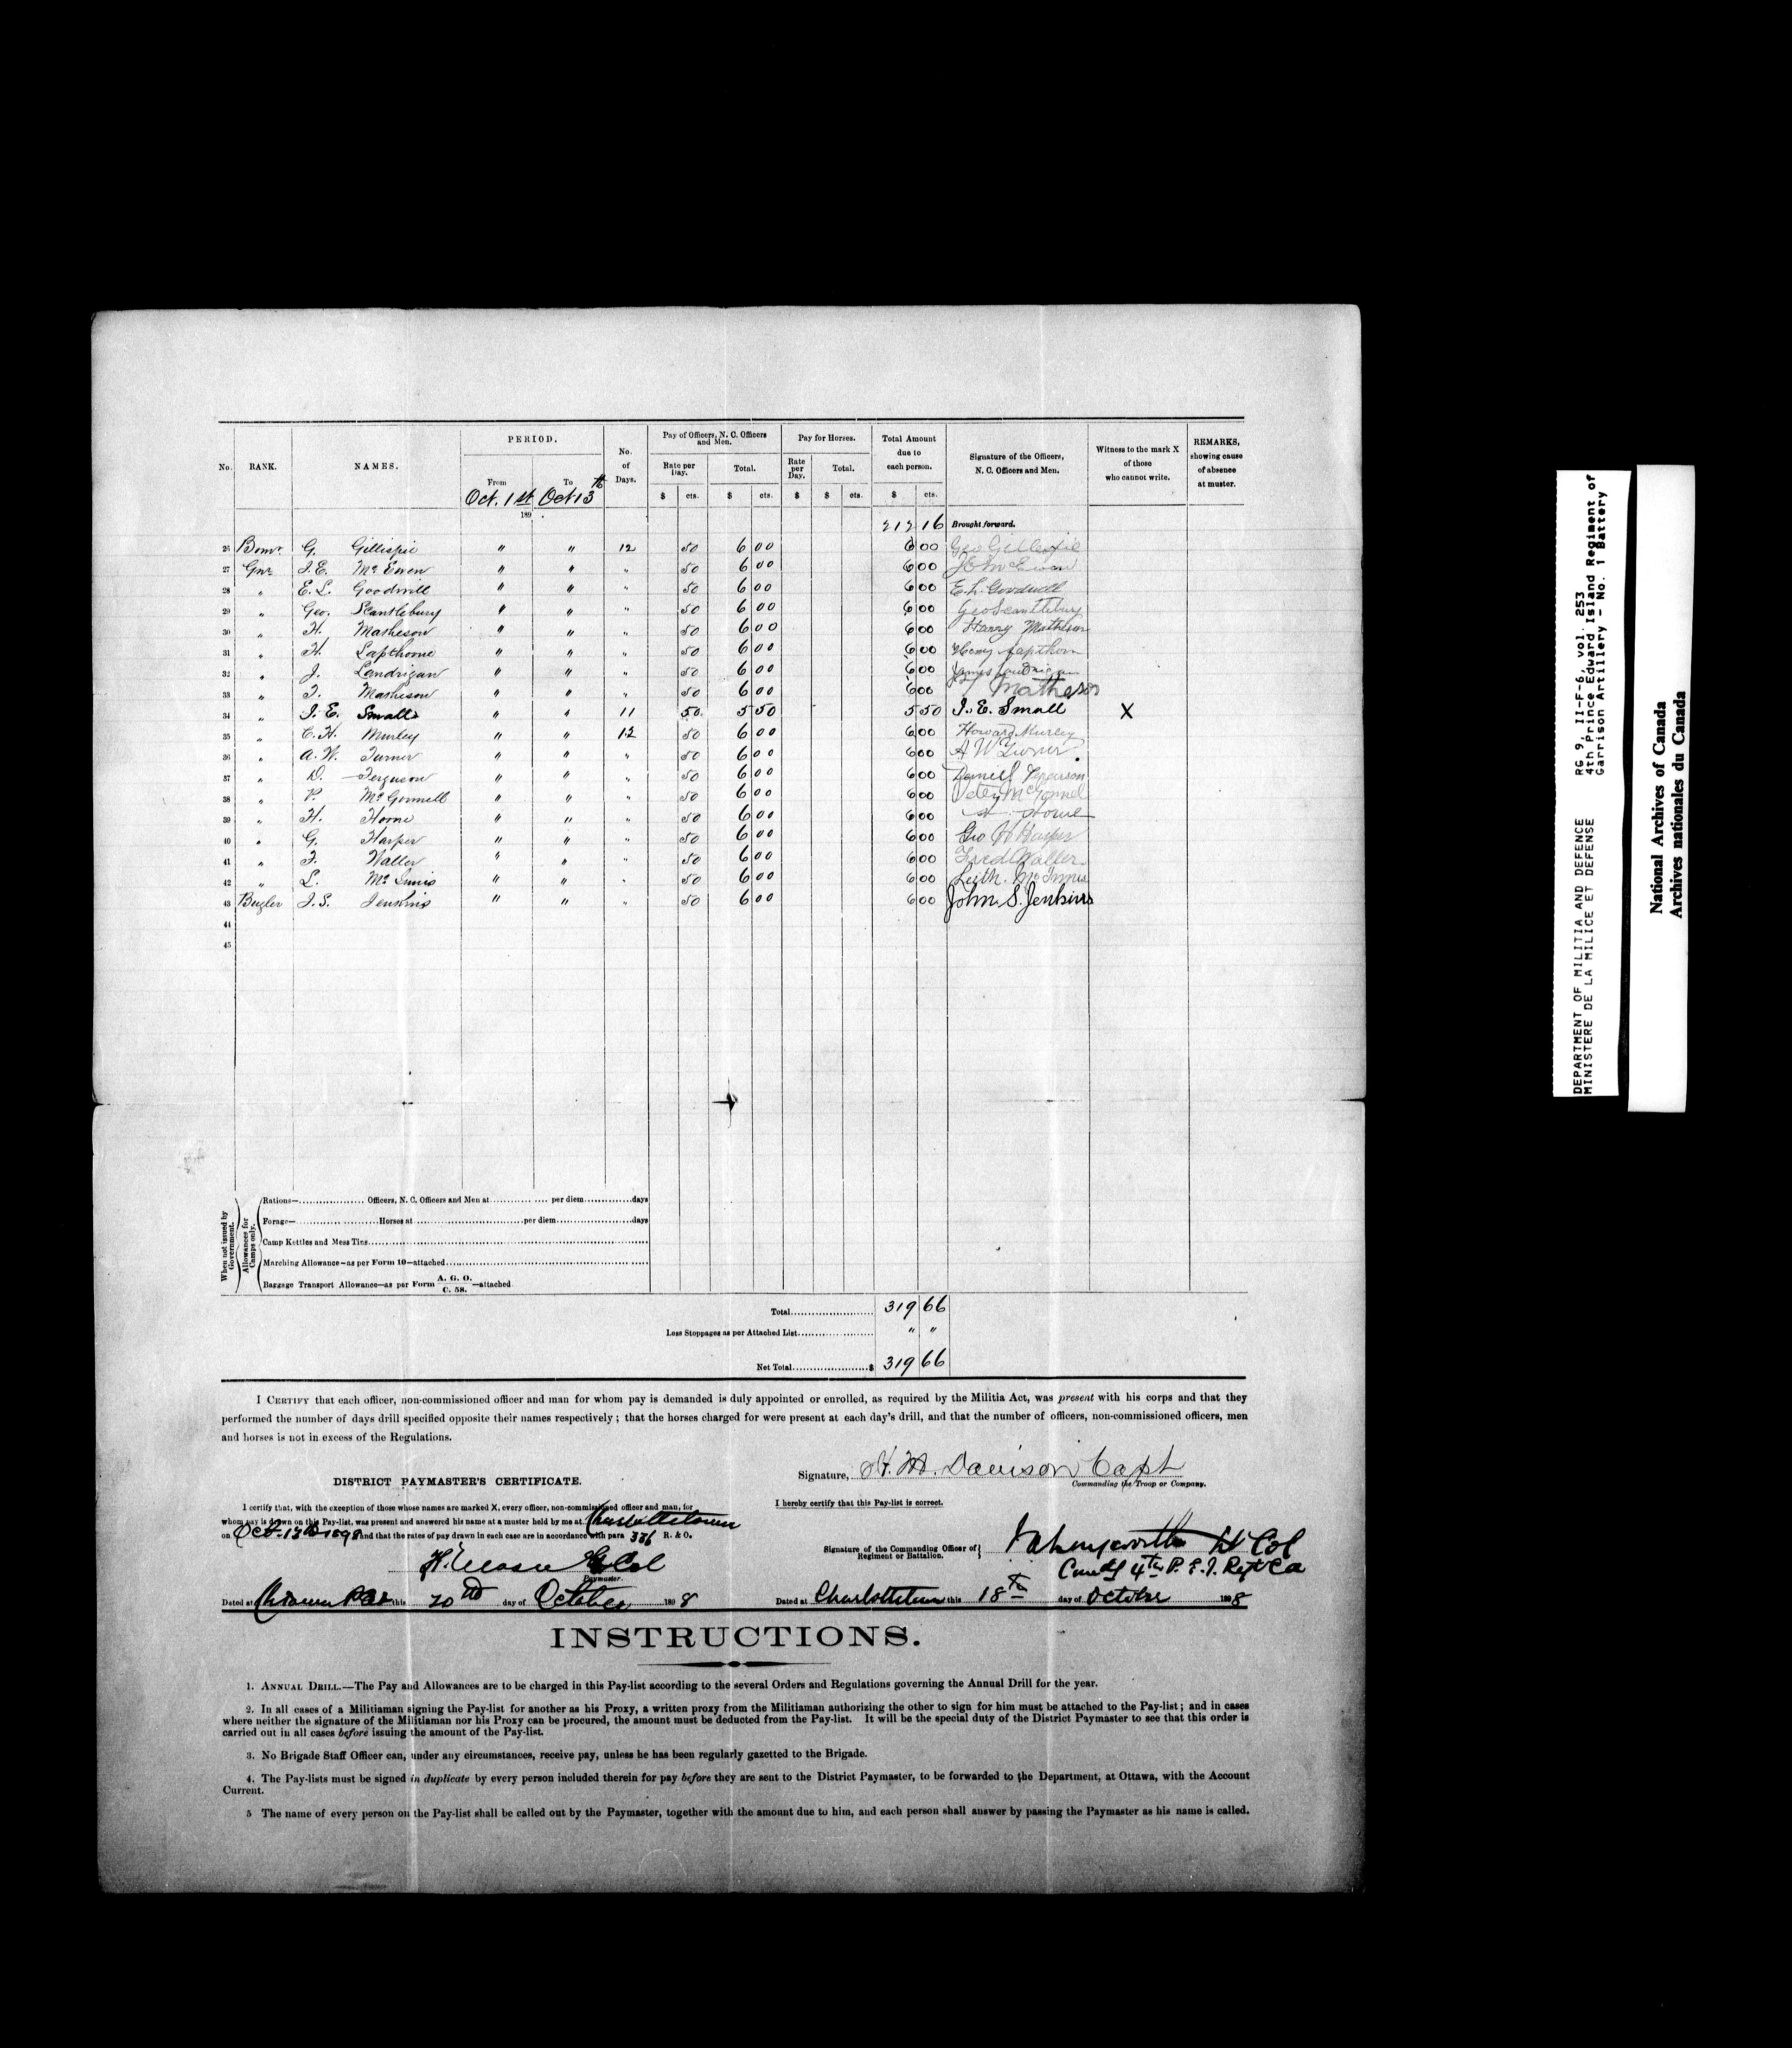 No. RANK. NAMES. PERIOD. No. of Days. Pay of Officers, N. C. Officers and Men. Pay for Horses. Total Amount due to each person. Signature of the Officers, N. C. Officers and Men. Witness to the mark X of those who cannot write. REMARKS, showing cause of absence at muster.
From To Rate per Day. Total. Rate per Day. Total.
Oct. 1st Oct 13th $ cts. $ cts. $ $ cts. $ cts.
189
212 16 Brought forward.
26 Bomr G. Gillispie " " 12 50 6 00 6 00 Geo Gillespie
27 Gnr J. E. McEwen " " " 50 6 00 6 00 J E McEwen
28 " E. L. Goodwill " " " 50 6 00 6 00 E. L. Goodwill
29 " Geo. Scantlebury " " " 50 6 00 6 00 Geo Scantlebury
30 " H. Matheson " " " 50 6 00 6 00 Harry Matheson
31 " H. Lapthorne " " " 50 6 00 6 00 Henry Lapthorn
32 " J. Landrigan " " " 50 6 00 6 00 James Landrigan
33 " Matheson " " " 50 6 00 6 00 Matheson
34 " J. E. Small " " 11 50 5 50 5 50 J. E. Small X
35 " C. H. Murley " " 12 50 6 00 6 00 Howard Murley
36 " A. W. Turner " " " 50 6 00 6 00 A W Turner
37 " D. Ferguson " " " 50 6 00 6 00 Daniel Ferguson
38 " P. McGonnell " " " 50 6 00 6 00 Peter McGonnel
39 " H. Horne " " " 50 6 00 6 00 H. Horne
40 " G. Harper " " " 50 6 00 6 00 Geo H Harper
41 " F. Waller " " " 50 6 00 6 00 Fred Waller
42 " L. McInnis " " " 50 6 00 6 00 Leith. McInnis
43 Bugler J. S. Jenkins " " " 50 6 00 6 00 John S. Jenkins
44
45
When not issued by Government.
Allowances for Camps only.
Rations— Officers, N. C. Officers and Men at per diem days
Forage— Horses at per diem days
Camp Kettles and Mess Tins
Marching Allowance—as per Form 10—attached
Baggage Transport Allowance—as per Form A. G. O. C. 58. —attached
Total 319 66
Less Stoppages as per Attached List " "
Net Total $ 319 66
I CERTIFY that each officer, non-commissioned officer and man for whom pay is demanded is duly appointed or enrolled, as required by the Militia Act, was present with his corps and that they
performed the number of days drill specified opposite their names respectively; that the horses charged for were present at each day's drill, and that the number of officers, non-commissioned officers, men
and horses is not in excess of the Regulations.
Signature, H. M. Davison Capt
Commanding the Troop or Company.
DISTRICT PAYMASTER'S CERTIFICATE.
I certify that, with the exception of those whose names are marked X, every officer, non-commissioned officer and man, for
whom pay is drawn on this Pay-list, was present and answered his name at a muster held by me at Charlottetown
on Oct. 13th 1898 and that the rates of pay drawn in each case are in accordance with para 336 R. & O.
Lt Col
Paymaster.
Dated at this 20nd day of October 1898
I hereby certify that this Pay-list is correct.
Signature of the Commanding Officer of Regiment or Battalion. Lt Col
Comdg 4th P. E. I. Regt CA
Dated at Charlottetown this 18th day of October 1898
INSTRUCTIONS.
1. ANNUAL DRILL.—The Pay and Allowances are to be charged in this Pay-list according to the several Orders and Regulations governing the Annual Drill for the year.
2. In all cases of a Militiaman signing the Pay-list for another as his Proxy, a written proxy from the Militiaman authorizing the other to sign for him must be attached to the Pay-list; and in cases
where neither the signature of the Militiaman nor his Proxy can be procured, the amount must be deducted from the Pay-list. It will be the special duty of the District Paymaster to see that this order is
carried out in all cases before issuing the amount of the Pay-list.
3. No Brigade Staff Officer can, under any circumstances, receive pay, unless he has been regularly gazetted to the Brigade.
4. The Pay-lists must be signed in duplicate by every person included therein for pay before they are sent to the District Paymaster, to be forwarded to the Department, at Ottawa, with the Account
Current.
5 The name of every person on the Pay-list shall be called out by the Paymaster, together with the amount due to him, and each person shall answer by passing the Paymaster as his name is called.
DEPARTMENT OF MILITIA AND DEFENCE RG 9, II-F-6, vol. 253
MINISTERE DE LA MILICE ET DEFENSE 4th Prince Edward Island Regiment of
Garrison Artillery - No. 1 Battery
National Archives of Canada
Archives nationales du Canada